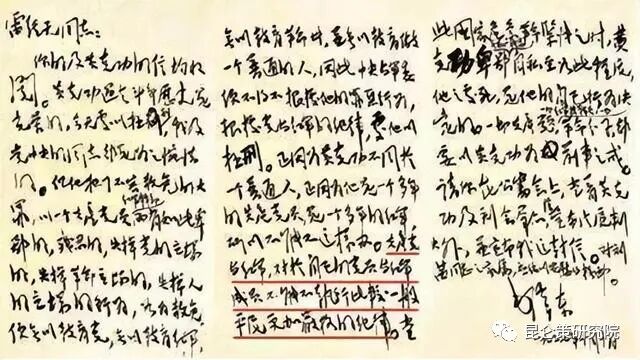 雷经天同志：
你的及黄克功的信均收
阅。黄克功过去斗争历史是
光荣的，今天处以极刑，我及
党中央的同志都是为之惋惜
的。但他犯了不容赦免的大
罪，以一个共产党员红军干部而有如此卑
鄙的，残忍的，失掉党的立场
的，失掉革命立场的，失掉人
的立场的行为，如为赦免，
便无以教育党，无以教育红军，
无以教育革命者，并无以教育做
一个普通的人，因此中央与军委
便不得不根据他的罪恶行为，
根据党与红军的纪律，处他以
极刑。正因为黄克功不同于
一个普通人，正因为他是一个多年
的共产党员，是一个多年的红军，
所以不能不这样办。共产党
与红军，对于自己的党员与红军
成员不能不执行比较一般
平民更加严格的纪律。当
此国家危急革命紧张之时，黄
克功卑鄙无耻残忍自私至如此程度，
他之处死，是他的自己行为决
定的。一切共产党员，一切红军指战员，一切革命分子，都
要以黄克功为前车之戒。
请你在公审会上，当着黄克
功及到会群众，除宣布法庭判
决外，并宣布我这封信。对刘
茜同志之家属，应给以安慰与抚恤。
毛泽东
昆仑策研究院